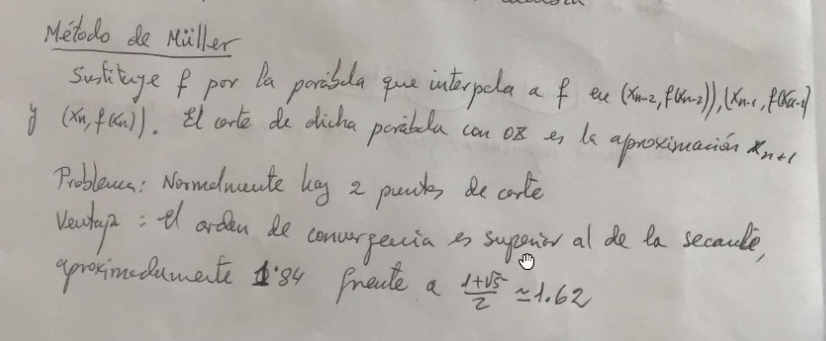 Método de Müller
Sustituye f por la parábola que interpola a f en (xn-2, f(xn-2)), (xn-1, f(xn-1)
y (xn, f(xn)). El corte de dicha parábola con OX es la aproximación xn+1
Problema: Normalmente hay 2 puntos de corte
Ventaja: el orden de convergencia es superior al de la secante,
aproximadamente 1'84 frente a (1+√5)/2 ≃ 1.62